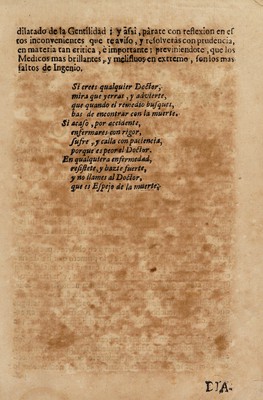 dilatado de la Gentilidad ; y aſsi , párate con reflexion en eſ
tos inconvenientes que te aviſo , y reſolverás con prudencia,
en materia tan critica , è importante ; previniendote , que los
Medicos mas brillantes , y meliſluos en extremo , ſon los mas
faltos de Ingenio.
Si crees qualquier Doctor,
mira que yerras, y advierte,
que quando el remedio buſques,
has de encontrar con la muerte.
Si acaſo , por accidente,
enfermares con rigor,
ſufre , y calla con paciencia,
porque es peor al Doctor.
En qualquiera enfermedad,
reſiſtete , y hazte fuerte,
y no llames al Doctor,
que es Eſpejo de la muerte,
DIA-